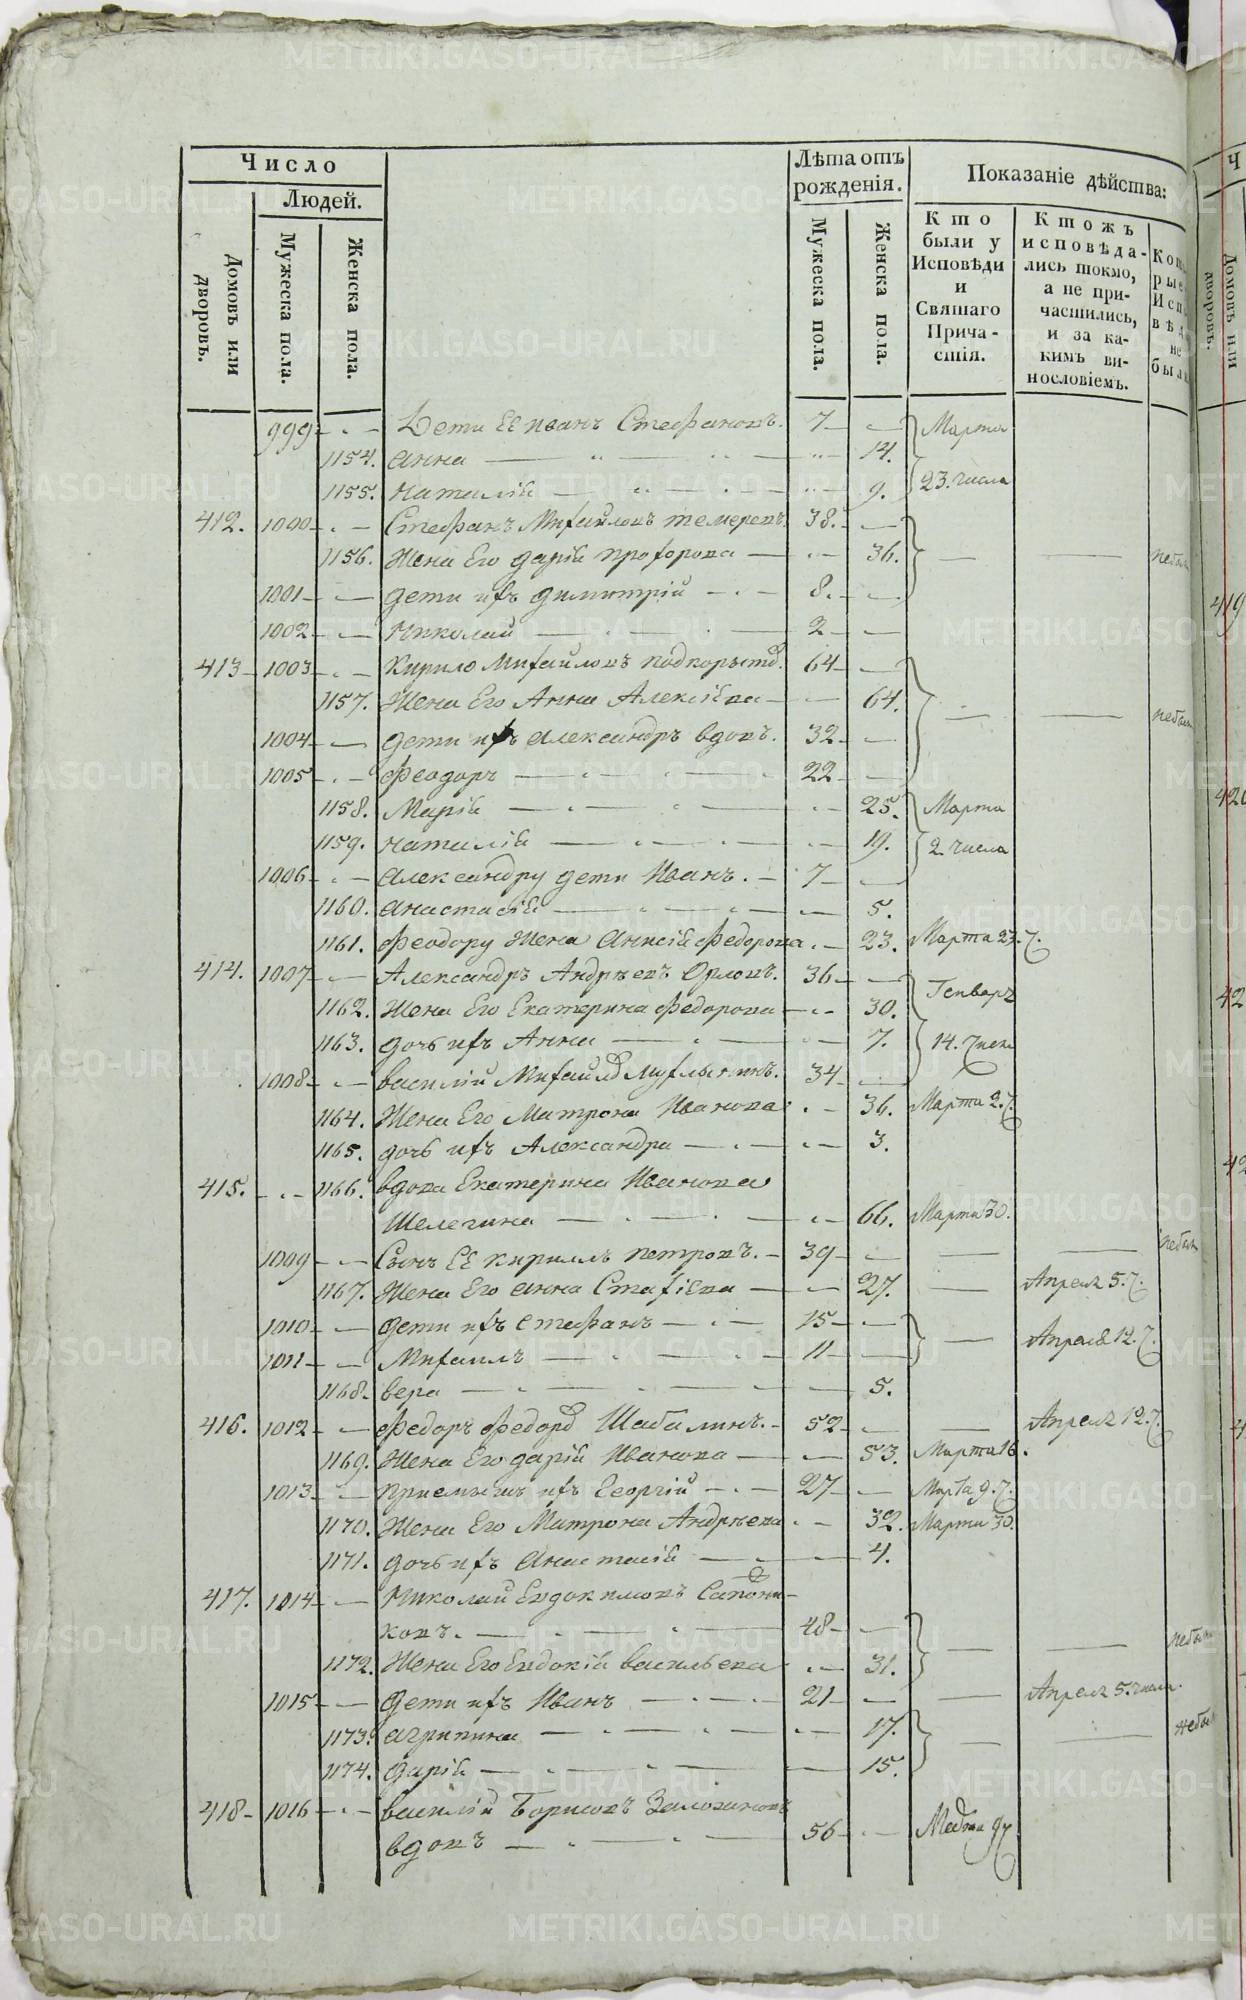 Число
Людей.
Домовъ или дворовъ.
Мужеска пола.
Женска пола.
Лѣта отъ рожденія.
Мужеска пола.
Женска пола.
Показаніе дѣйства:
Кто были у Исповѣди и Святаго Прича-стія.
Ктожъ исповѣда-лись токмо, а не при-частились, и за ка-кимъ ви-нословіемъ.
999 Дети Ее иванъ Стефановъ. 7 Марта
1154. анна 14.
1155. наталія 9. 23. числа
412. 1000 Стефанъ Михайловъ 38.
1156. Жена Его дарія прохорова 36. небыли
1001 дети ихъ димитрій 8.
1002 Николай 2
413 1003 Кирило Михайловъ 64
1157. Жена Его Анна Алексіева 64. небыли
1004 дети ихъ александръ вдовъ. 32
1005 Феодоръ 22
1158. Марія 25. Марта
1159. наталія 19. 2 числа
1006 александру дети Иванъ. 7
1160. анастасія 5.
1161. Феодору Жена Федорова 23. Марта 23. ч.
414. 1007 Александръ Андрѣевъ Орловъ. 36 Генваря
1162. Жена Его Екатерина Федорова 30.
1163. дочь ихъ Анна 7. 14. числа
1008 василій 34
1164. Жена Его Матрона Иванова 36. Марта 2. ч.
1165. дочь ихъ Александра 3.
415. 1166. вдова Екатерина Иванова
Шелегина 66. Марта 30.
1009 Сынъ Ее кириллъ петровъ. 39 небылъ
1167. Жена Его анна 27. Апреля 5. ч.
1010 дети ихъ стефанъ 15 Апреля 12. ч.
1011 Михаилъ 11
1168. вера 5.
416. 1012 Федоръ Федор Шабалинъ. 52 Апреля 12. ч.
1169. Жена Его дарія Иванова 53. Марта 16.
1013 приемышъ ихъ Георгій 27 Марта 9. ч.
1170. Жена Его Матрона Андрѣева 32. Марта 30.
1171. дочь ихъ анастасія 4.
417. 1014 Николай Евдокимовъ Сапожни-
ковъ. 48 небыли
1172. Жена Его Евдокія васильева 31.
1015 дети ихъ Иванъ 21 Апреля 5. числа.
1173. агрипина 17. небыли
1174. дарія 15.
418 1016 василій Борисовъ
вдовъ 56 Марта 9 ч
Ч
Домовъ или дворовъ.
419
METRIKI.GASO-URAL.RU